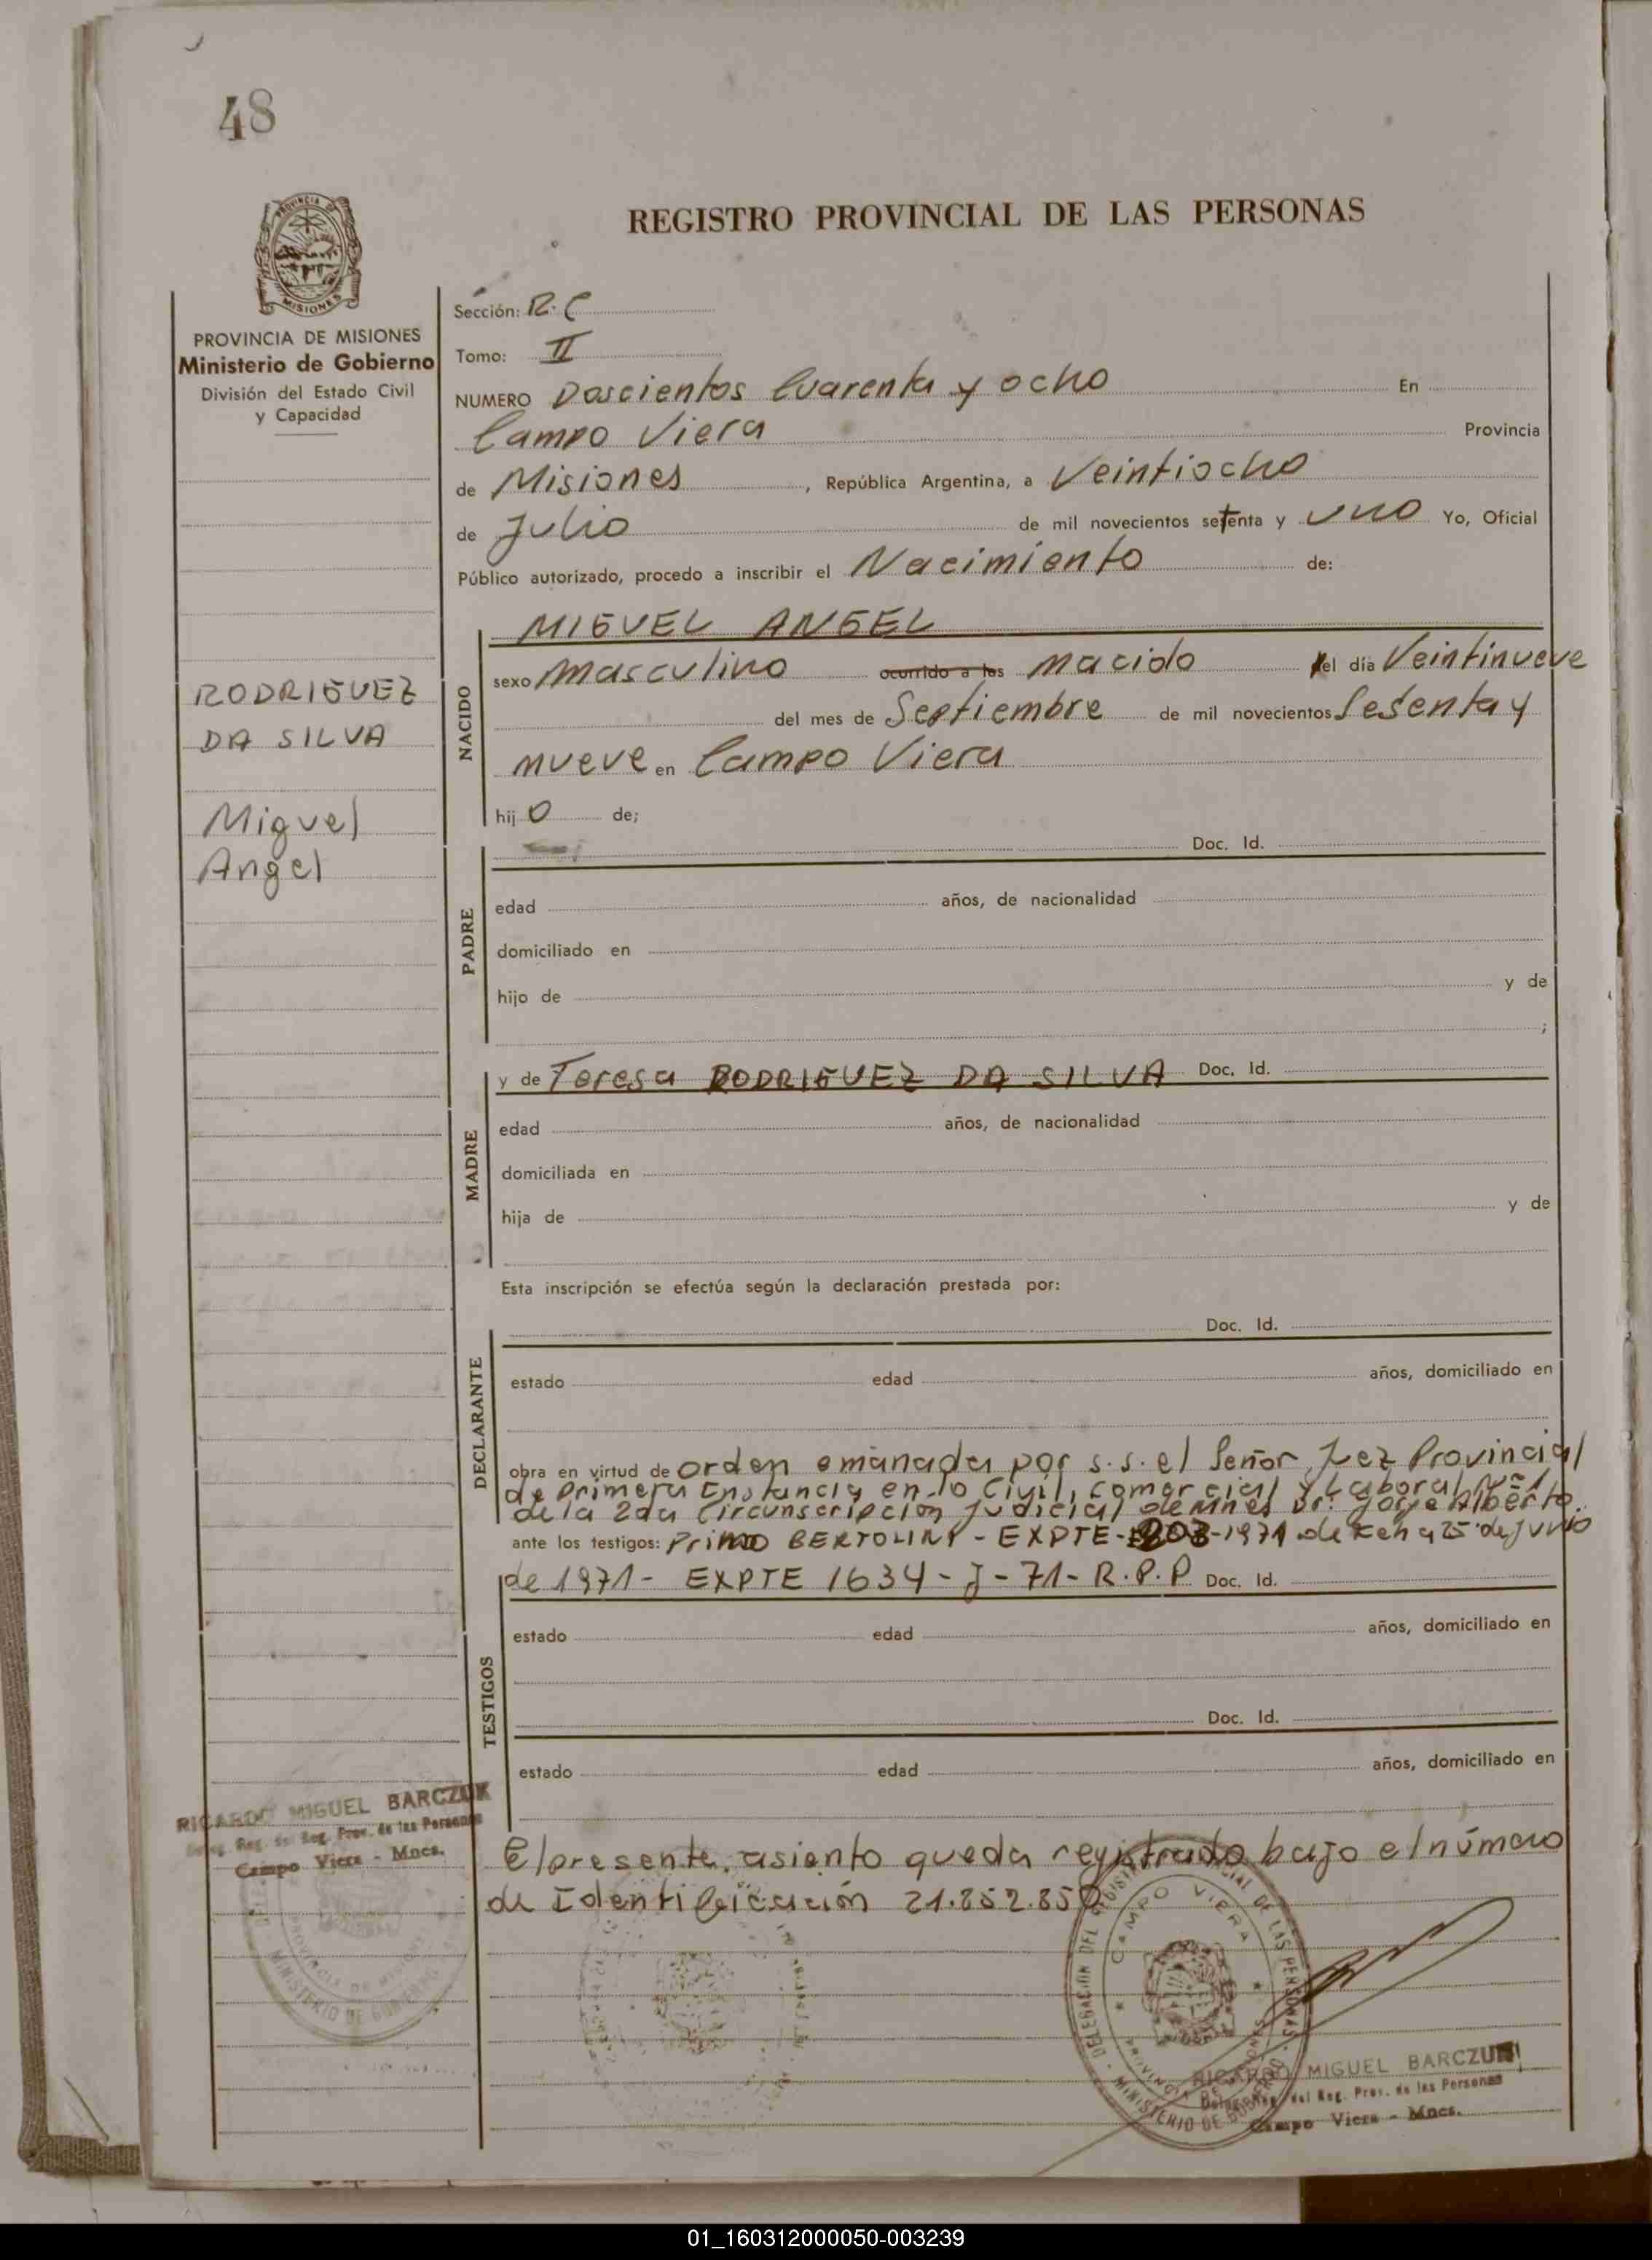 48
REGISTRO PROVINCIAL DE LAS PERSONAS
PROVINCIA DE MISIONES
Ministerio de Gobierno
División del Estado Civil
y Capacidad
RODRIGUEZ
DA SILVA
Miguel
Angel
Sección: R.C
Tomo: II
NUMERO Doscientos Cuarenta y ocho En
Campo Viera Provincia
de Misiones, República Argentina, a Veintiocho
de Julio de mil novecientos setenta y uno Yo, Oficial
Público autorizado, procedo a inscribir el Nacimiento de:
NACIDO
MIGUEL ANGEL
sexo masculino ocurrido a las nacido el día Veintinueve
del mes de Septiembre de mil novecientos Sesenta y
nueve en Campo Viera
hijo de;
Doc. Id.
PADRE
edad años, de nacionalidad
domiciliado en
hijo de y de
;
MADRE
y de Teresa RODRIGUEZ DA SILVA Doc. Id.
edad años, de nacionalidad
domiciliada en
hija de y de
Esta inscripción se efectúa según la declaración prestada por:
DECLARANTE
Doc. Id.
estado edad años, domiciliado en
obra en virtud de orden emanada por s.s. el Señor Juez Provincial
de Primera Instancia en lo Civil, Comercial y Laboral Nº 1
de la 2da Circunscripción Judicial de Mnes Dr. Jorge Alberto
ante los testigos: Primo BERTOLINI - EXPTE- -1971 de fecha 25 de Junio
de 1971- EXPTE 1634-J-71- R.P.P Doc. Id.
TESTIGOS
estado edad años, domiciliado en
Doc. Id.
estado edad años, domiciliado en
El presente asiento queda registrado bajo el número
de Identificación 21.852.850
RICARDO MIGUEL BARCZUK
Reg. del Reg. Prov. de las Personas
Campo Viera - Mnes.
PROVINCIA DE MISIONES
MINISTERIO DE GOBIERNO
DELEGACION DEL REGISTRO PROVINCIAL DE LAS PERSONAS
CAMPO VIERA
PROVINCIA DE MISIONES
MINISTERIO DE GOBIERNO
RICARDO MIGUEL BARCZUK
del Reg. Prov. de las Personas
Campo Viera - Mnes.
01_160312000050-003239